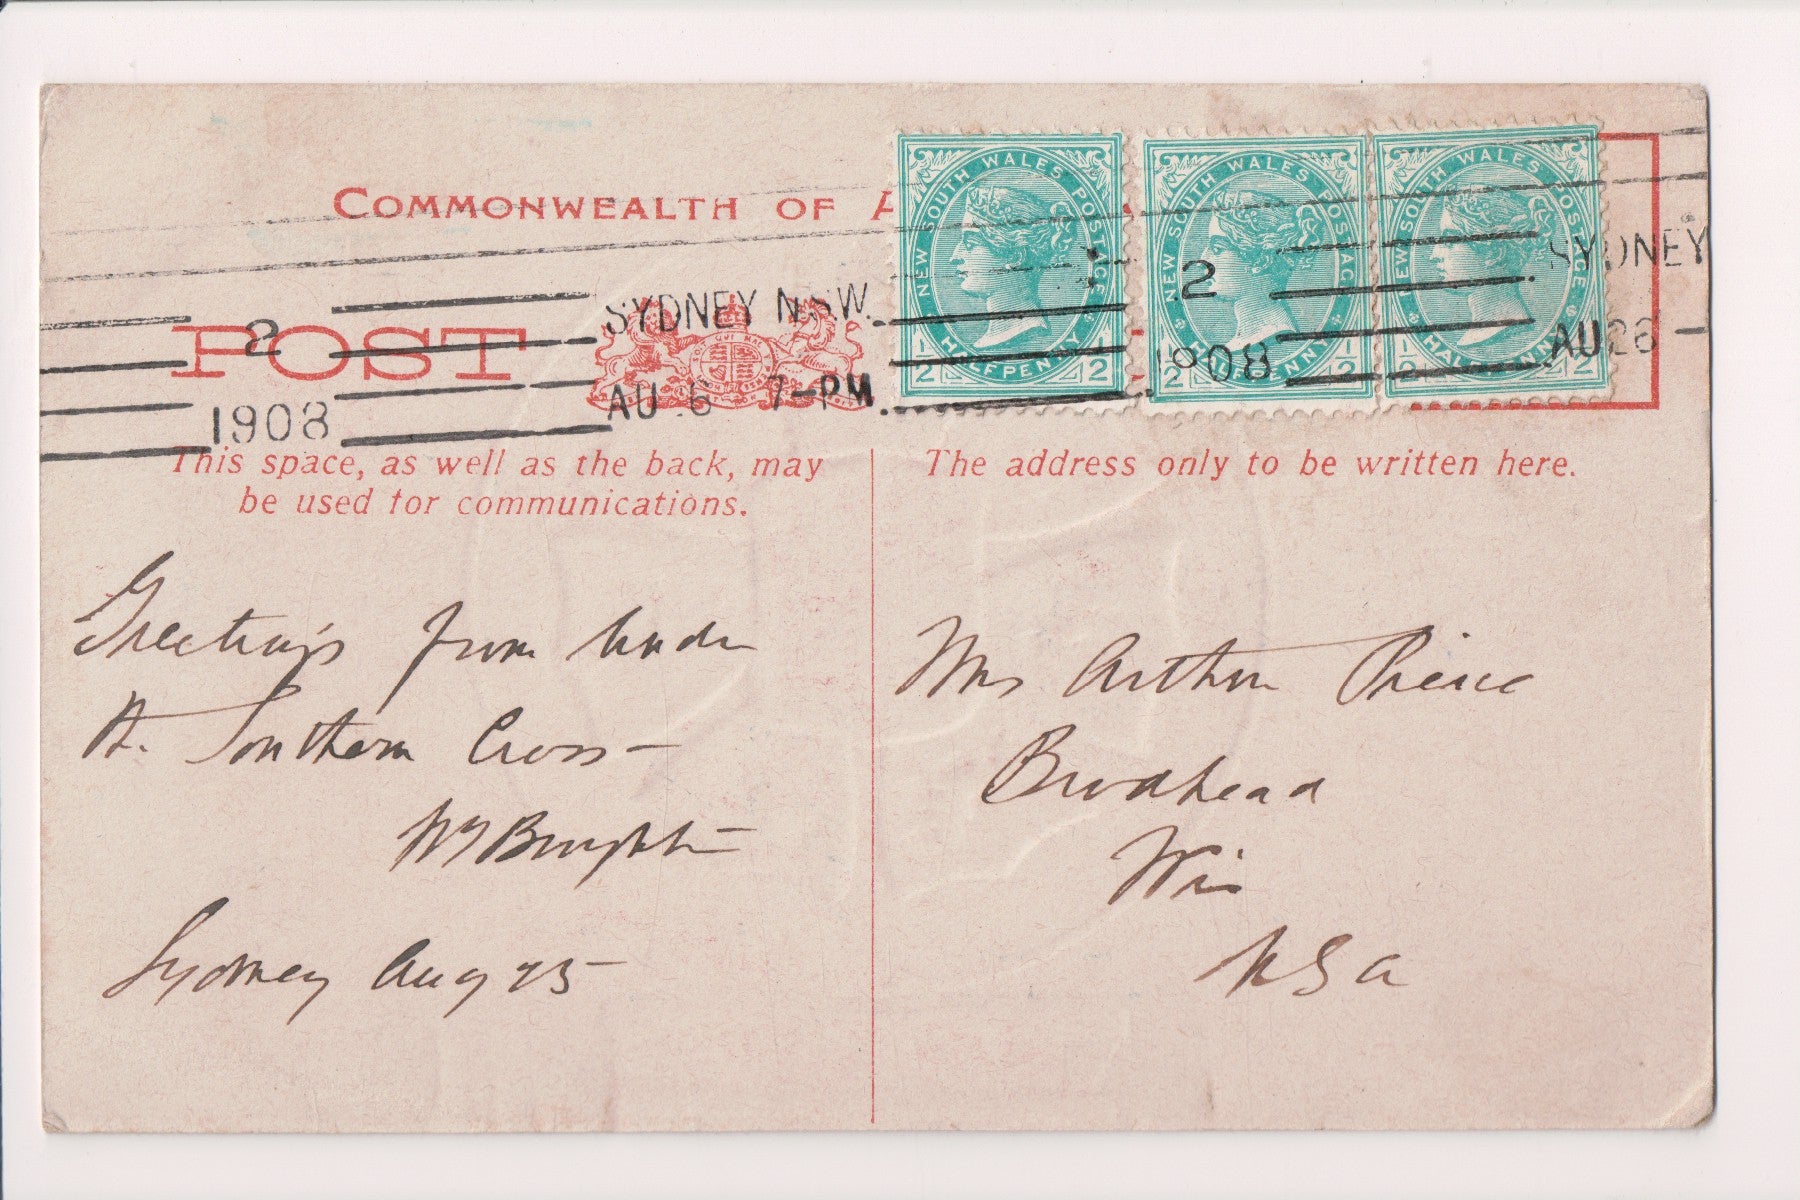 COMMONWEALTH OF A
POST
SYDNEY N.S.W.
AU 26 7-PM
2
1908
2
1908
SYDNEY
AU 26 -
NEW SOUTH WALES POSTAGE
HALFPENNY
1/2 1/2
NEW SOUTH WALES POSTAGE
1/2 1/2
NEW SOUTH WALES POSTAGE
1/2 1/2
This space, as well as the back, may
be used for communications.
The address only to be written here.
Greetings from under
the Southern Cross -
Sydney Aug 25
Mrs Arthur Pierce
Brodhead
Wis
USA